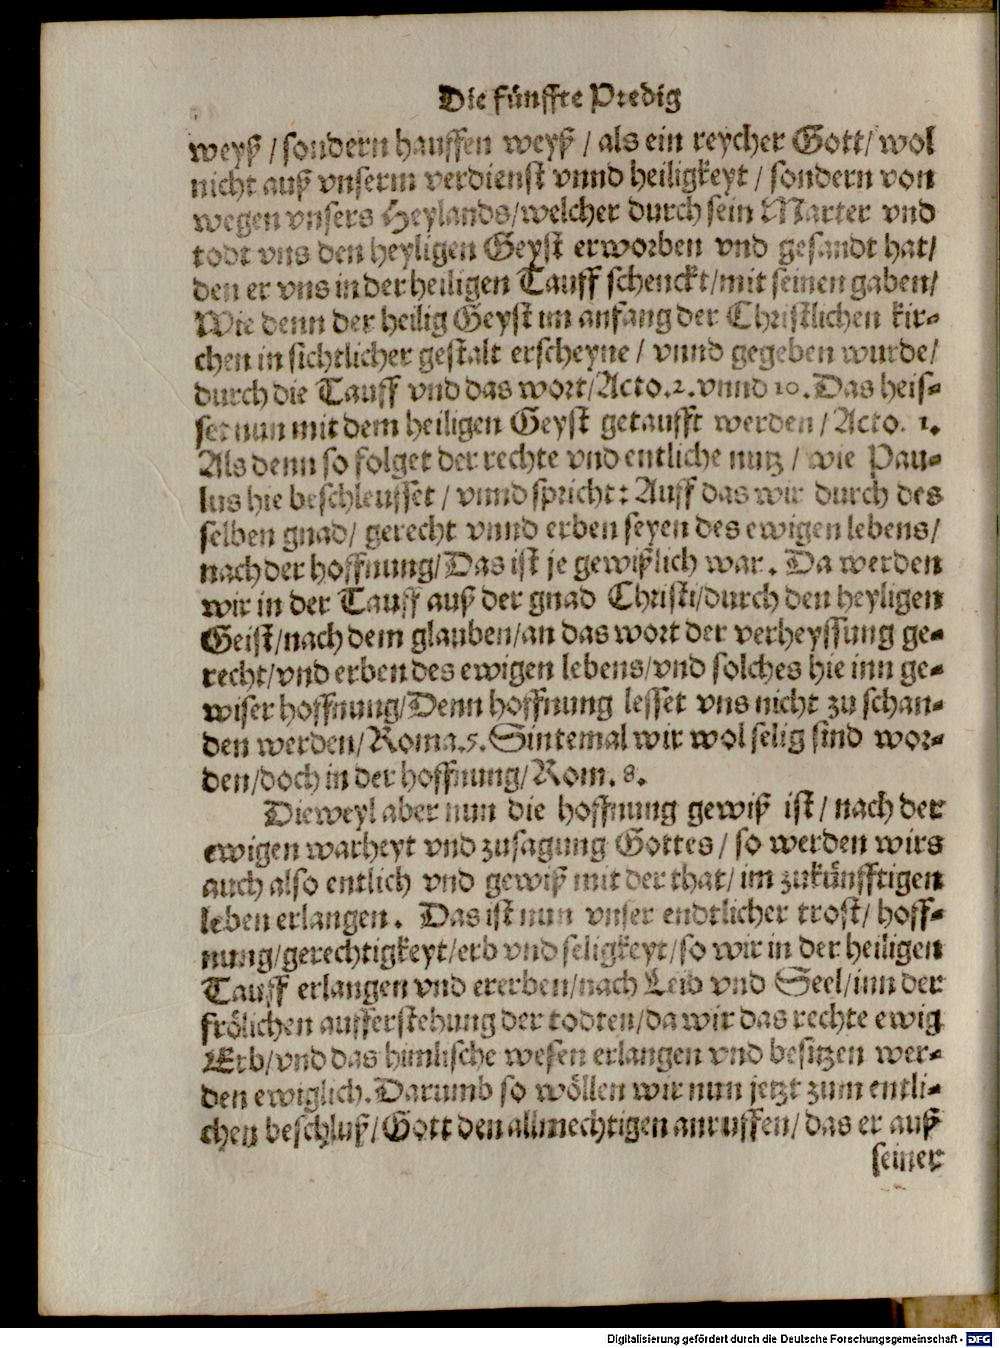 Die fünffte Predig
weyß / sondern hauffen weyß / als ein reycher Gott / wol
nicht auß vnserm verdienst vnnd heiligkeyt / sondern von
wegen vnsers Heylands / welcher durch sein Marter vnd
todt vns den heyligen Geyst erworben vnd gesandt hat /
den er vns in der heiligen Tauff schenckt / mit seinen gaben /
Wie denn der heilig Geyst im anfang der Christlichen kir-
chen in sichtlicher gestalt erscheyne / vnnd gegeben wurde /
durch die Tauff vnd das wort / Acto. 2. vnnd 10. Das heis-
set nun mit dem heiligen Geyst getaufft werden / Acto. 1.
Als denn so folget der rechte vnd entliche nutz / wie Pau-
lus hie beschleusset / vnnd spricht: Auff das wir durch des
selben gnad / gerecht vnnd erben seyen des ewigen lebens /
nach der hoffnung / Das ist je gewißlich war. Da werden
wir in der Tauff auß der gnad Christi / durch den heyligen
Geist / nach dem glauben / an das wort der verheyssung ge-
recht / vnd erben des ewigen lebens / vnd solches hie inn ge-
wiser hoffnung / Denn hoffnung lesset vns nicht zu schan-
den werden / Roma. 5. Sintemal wir wol selig sind wor-
den / doch in der hoffnung / Rom. 8.
Dieweyl aber nun die hoffnung gewiß ist / nach der
ewigen warheyt vnd zusagung Gottes / so werden wirs
auch also entlich vnd gewiß mit der that / im zukünfftigen
leben erlangen. Das ist nun vnser endtlicher trost / hoff-
nung / gerechtigkeyt / erb vnd seligkeyt / so wir in der heiligen
Tauff erlangen vnd ererben / nach Leib vnd Seel / inn der
frölichen aufferstehung der todten / da wir das rechte ewig
Erb / vnd das himlische wesen erlangen vnd besitzen wer-
den ewiglich. Darumb so wöllen wir nun jetzt zum entli-
chen beschluß / Gott den allmechtigen anruffen / das er auß
seiner
Digitalisierung gefördert durch die Deutsche Forschungsgemeinschaft - DFG